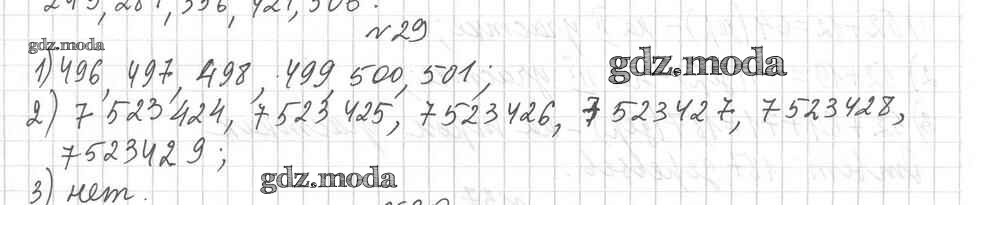 №29
gdz.moda
1) 496, 497, 498, 499, 500, 501;
gdz.moda
2) 7 523 424, 7 523 425, 7 523 426, 7 523 427, 7 523 428,
7 523 429;
gdz.moda
3) нет.